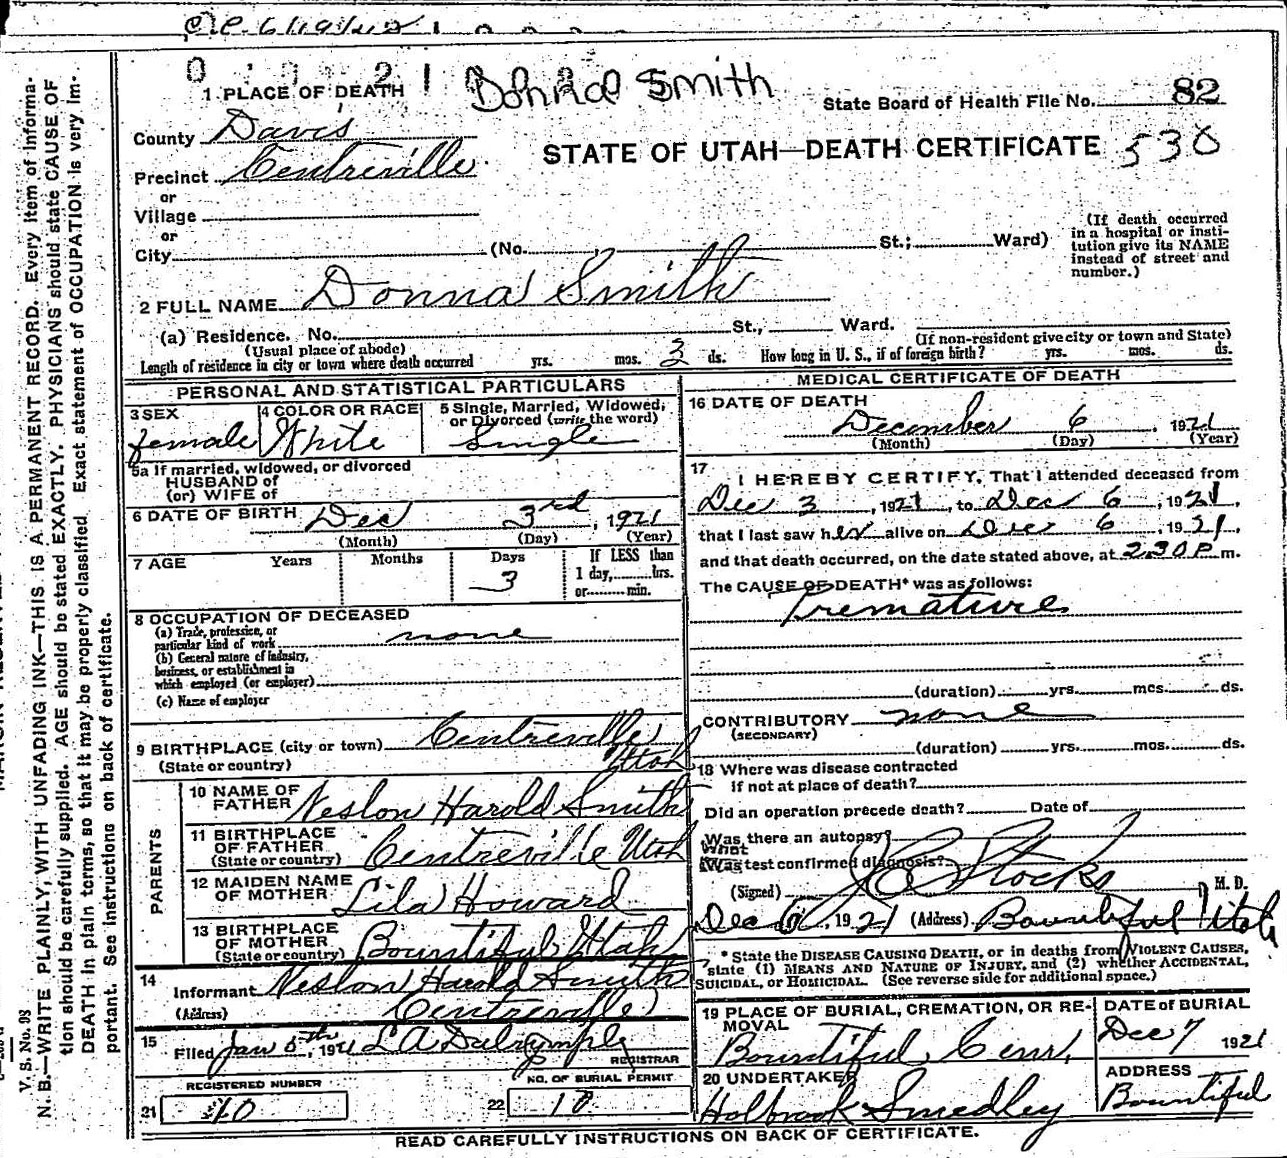 Donna Smith
1 PLACE OF DEATH
State Board of Health File No. 82
County Davis
STATE OF UTAH—DEATH CERTIFICATE 538
Precinct Centreville
or
Village
or
City (No. St.; Ward)
(If death occurred in a hospital or insti-
tution give its NAME
instead of street and
number.)
2 FULL NAME Donna Smith
(a) Residence. No. St., Ward.
(Usual place of abode) (If non-resident give city or town and State)
Length of residence in city or town where death occurred yrs. mos. 3 ds. How long in U. S., if of foreign birth? yrs. mos. ds.
PERSONAL AND STATISTICAL PARTICULARS
3 SEX female
4 COLOR OR RACE White
5 Single, Married, Widowed,
or Divorced (write the word)
Single
5a If married, widowed, or divorced
HUSBAND of
(or) WIFE of
6 DATE OF BIRTH Dec 3rd, 1921
(Month) (Day) (Year)
7 AGE Years Months Days 3 If LESS than
1 day, hrs.
or min.
8 OCCUPATION OF DECEASED
(a) Trade, profession, or
particular kind of work none
(b) General nature of industry,
business, or establishment in
which employed (or employer)
(c) Name of employer
9 BIRTHPLACE (city or town) Centreville
(State or country) Utah
PARENTS
10 NAME OF
FATHER Neslon Harold Smith
11 BIRTHPLACE
OF FATHER
(State or country) Centreville Utah
12 MAIDEN NAME
OF MOTHER Lila Howard
13 BIRTHPLACE
OF MOTHER
(State or country) Bountiful Utah
14
Informant Neslon Harold Smith
(Address) Centreville
15
Filed Jan 5th, 1921 L A Dalrymple
REGISTRAR
REGISTERED NUMBER
21 40
NO. OF BURIAL PERMIT
22 10
MEDICAL CERTIFICATE OF DEATH
16 DATE OF DEATH
December 6, 1921
(Month) (Day) (Year)
17
I HEREBY CERTIFY, That I attended deceased from
Dec 3, 1921, to Dec 6, 1921,
that I last saw her alive on Dec 6, 1921,
and that death occurred, on the date stated above, at 2.30 P m.
The CAUSE OF DEATH* was as follows:
Premature
(duration) yrs. mos. ds.
CONTRIBUTORY none
(SECONDARY)
(duration) yrs. mos. ds.
18 Where was disease contracted
if not at place of death?
Did an operation precede death? Date of
Was there an autopsy?
What
Was test confirmed diagnosis?
(Signed) J C Stocks M. D.
Dec 6, 1921 (Address) Bountiful Utah
* State the DISEASE CAUSING DEATH, or in deaths from VIOLENT CAUSES,
state (1) MEANS AND NATURE OF INJURY, and (2) whether ACCIDENTAL,
SUICIDAL, or HOMICIDAL. (See reverse side for additional space.)
19 PLACE OF BURIAL, CREMATION, OR RE-
MOVAL
Bountiful, Cem,
DATE of BURIAL
Dec 7 1921
20 UNDERTAKER
Holbrook Smedley
ADDRESS
Bountiful
READ CAREFULLY INSTRUCTIONS ON BACK OF CERTIFICATE.
V. S. No. 98
N. B.—WRITE PLAINLY, WITH UNFADING INK—THIS IS A PERMANENT RECORD. Every item of informa-
tion should be carefully supplied. AGE should be stated EXACTLY. PHYSICIANS should state CAUSE OF
DEATH in plain terms, so that it may be properly classified. Exact statement of OCCUPATION is very im-
portant. See instructions on back of certificate.